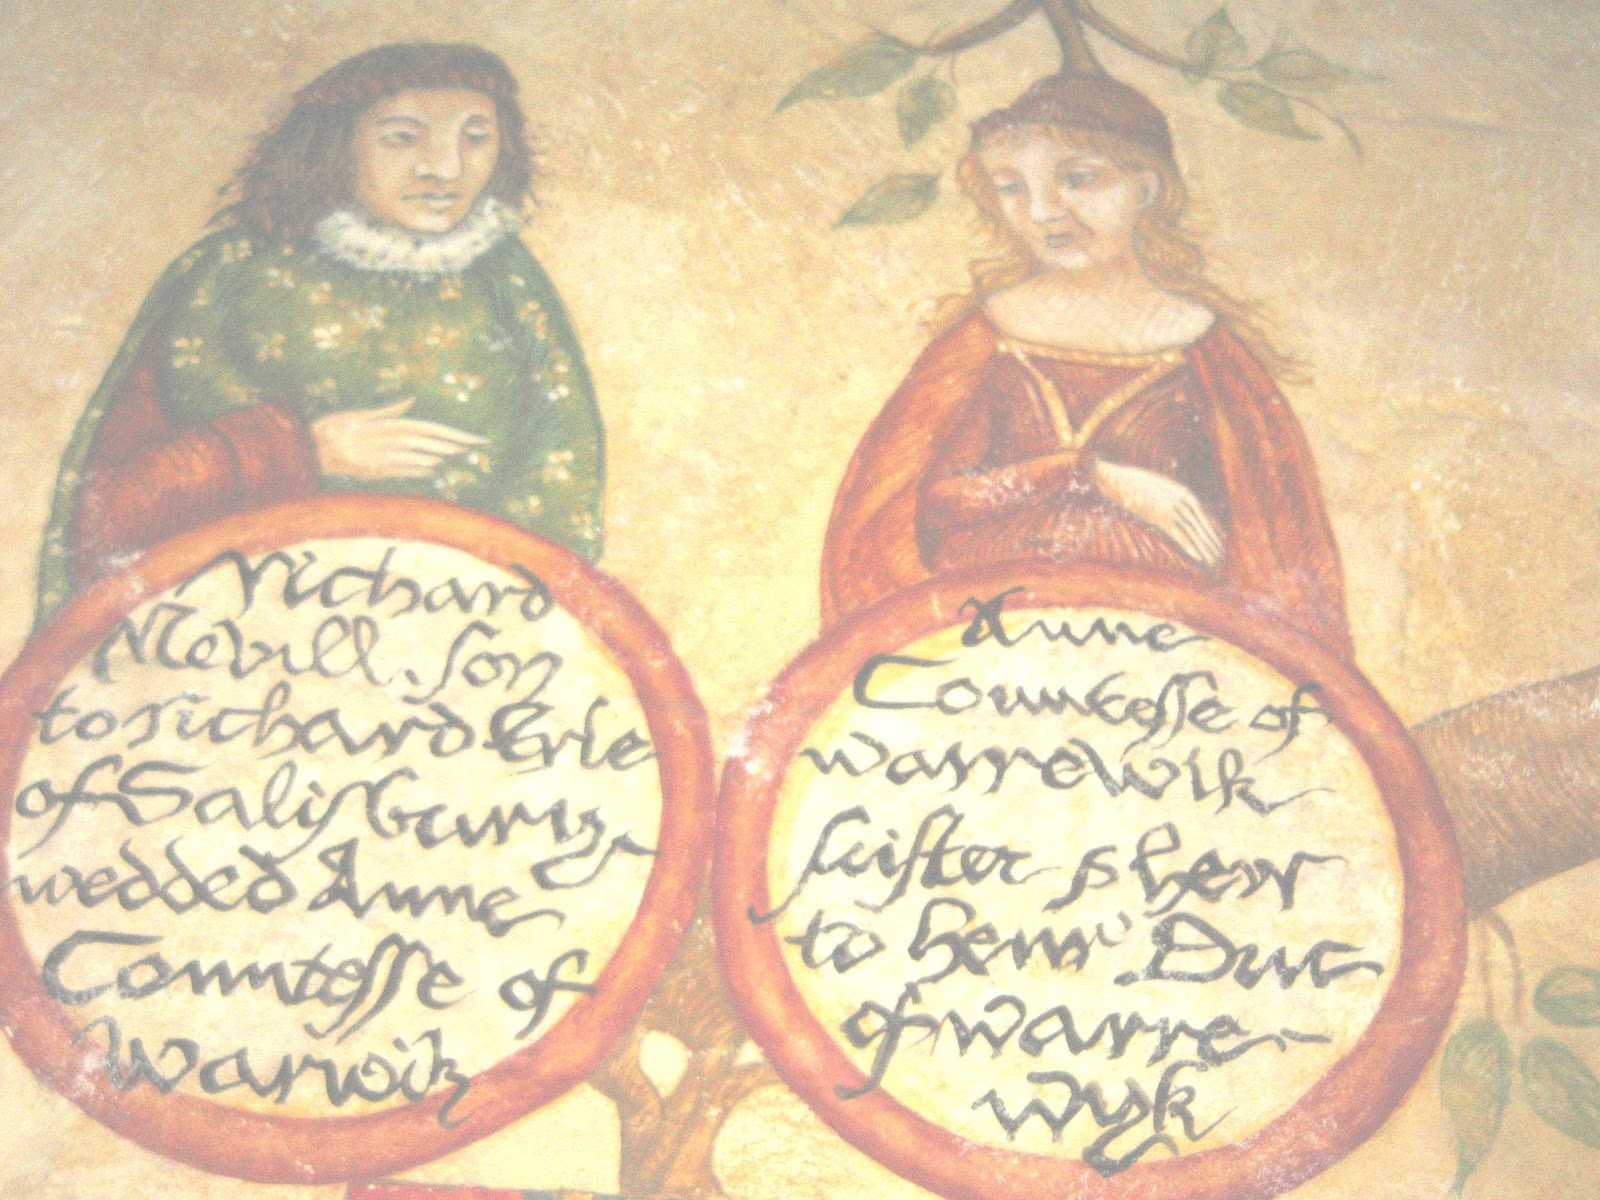 Richard
Nevill. son
to richard Erle
of Salisbury
wedded Anne
Countesse of
Warwik
Anne
Countesse of
warrewik
suister & heir
to henri Duc
of warre-
wyk